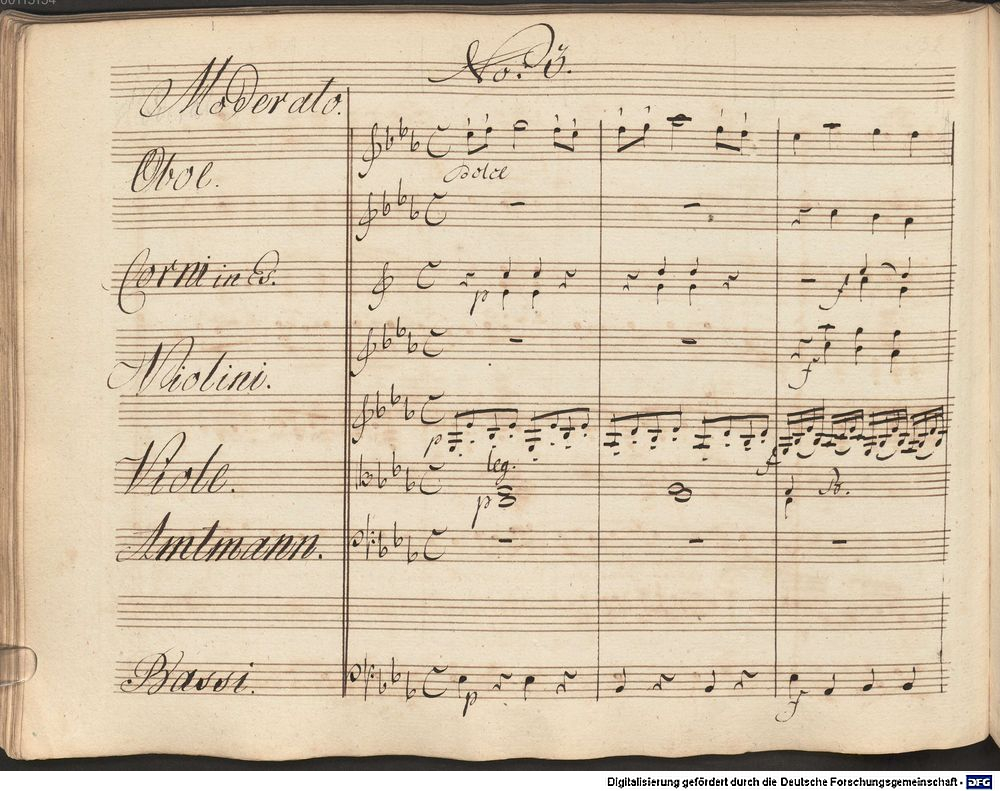 No. 3.
Moderato.
Oboe.
Dolce
Corni in Es.
p
f
Violini.
f
p
f
Viole.
leg.
p
Amtmann.
Bassi.
p
f
Digitalisierung gefördert durch die Deutsche Forschungsgemeinschaft - DFG